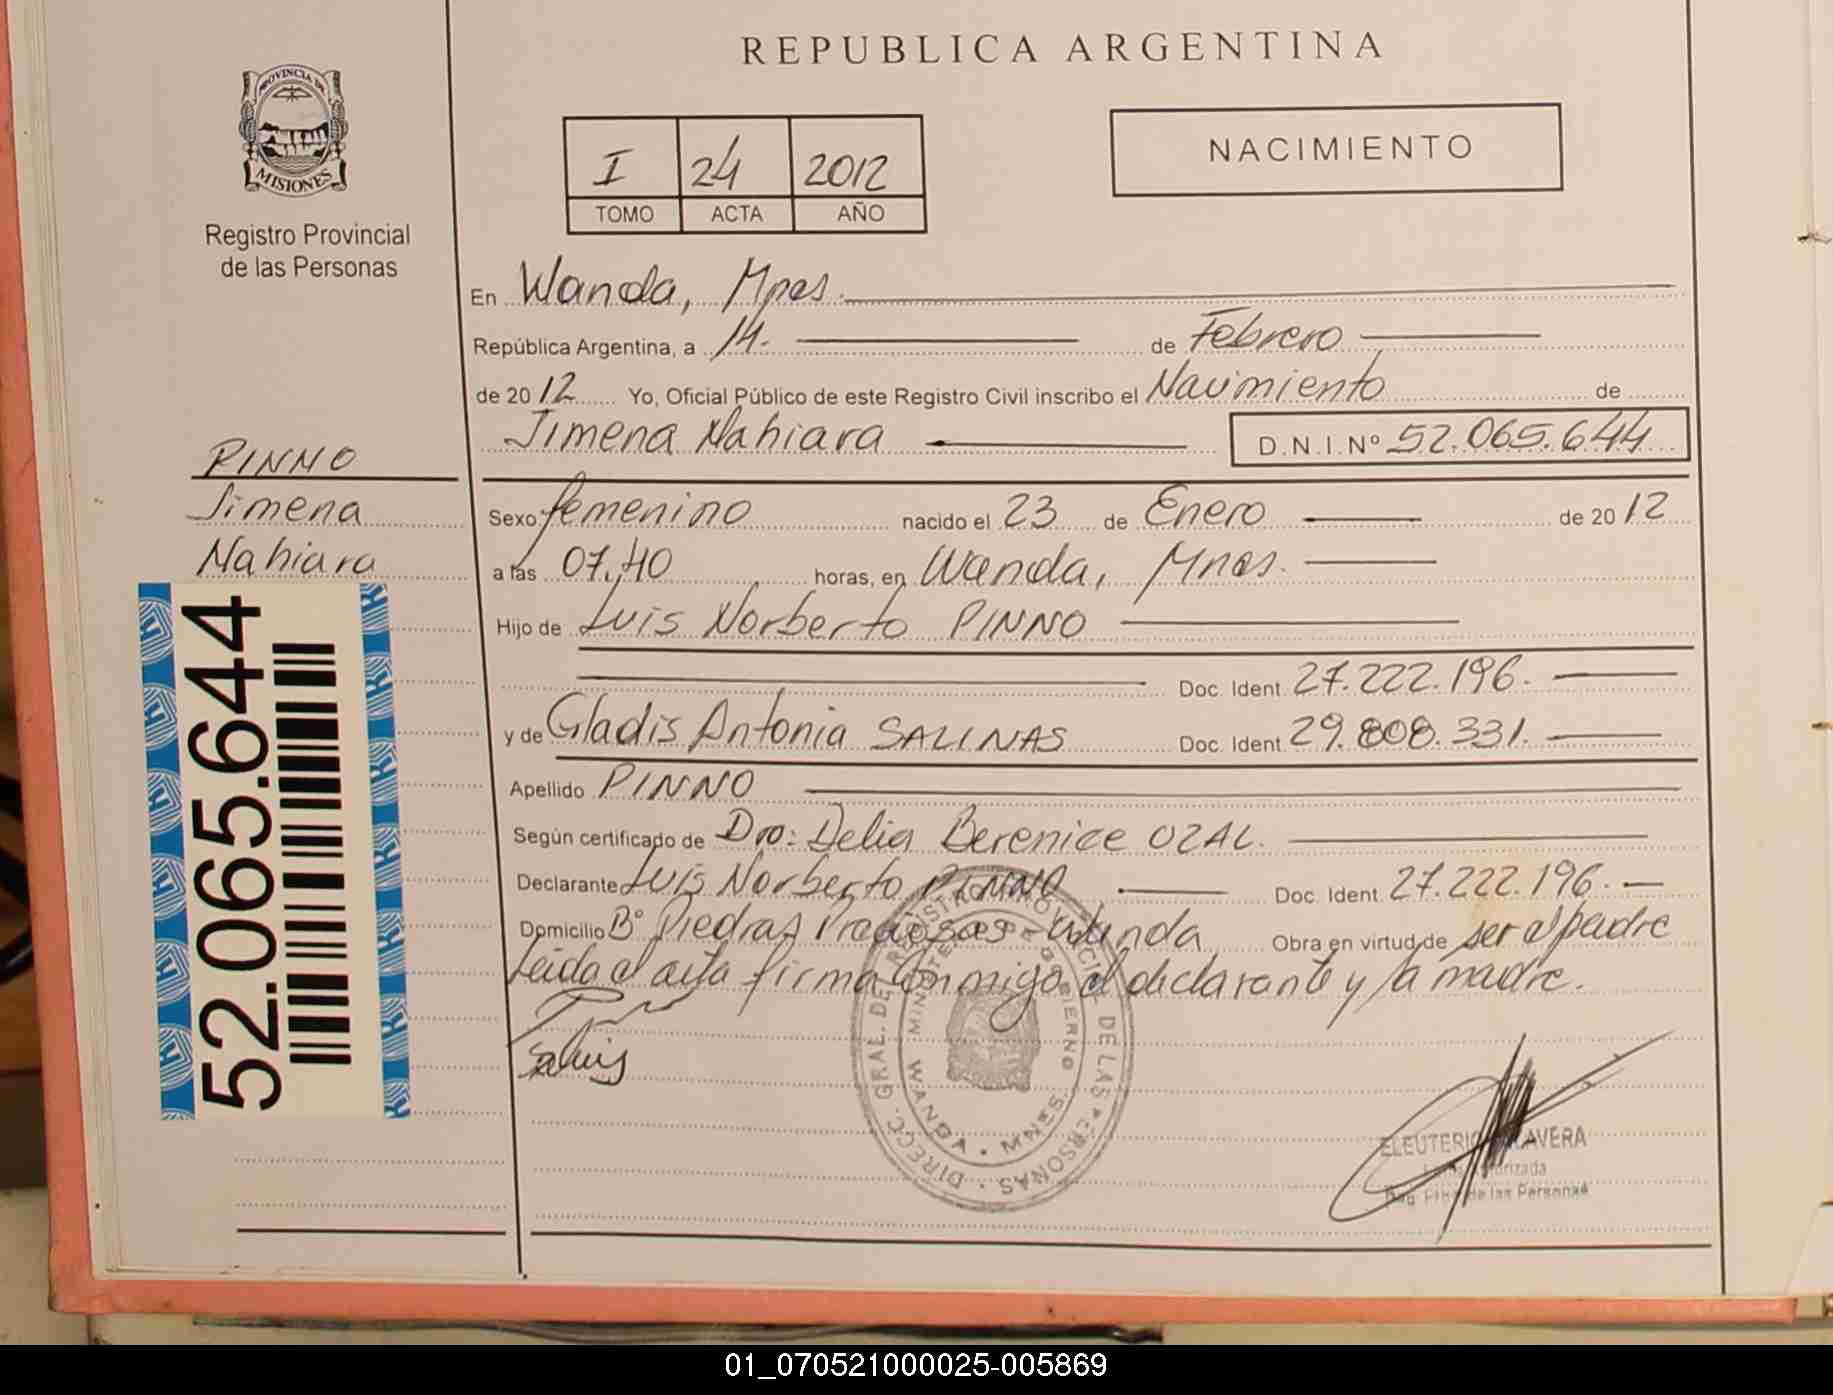 REPUBLICA ARGENTINA
PROVINCIA DE
MISIONES
Registro Provincial
de las Personas
I 24 2012
TOMO ACTA AÑO
NACIMIENTO
En Wanda, Mnes.
República Argentina, a 14. de Febrero
de 2012 Yo, Oficial Público de este Registro Civil inscribo el Nacimiento de
Jimena Nahiara D.N.I.Nº 52.065.644
PINNO
Jimena
Nahiara
52.065.644
Sexo femenino nacido el 23 de Enero de 2012
a las 07,40 horas, en Wanda, Mnes.
Hijo de Luis Norberto PINNO
Doc. Ident. 27.222.196.
y de Gladis Antonia SALINAS Doc. Ident. 29.808.331.
Apellido PINNO
Según certificado de Dra: Delia Berenice OZAL.
Declarante Luis Norberto PINNO Doc. Ident. 27.222.196.
Domicilio Bº Piedras Preciosas Wanda Obra en virtud de ser el padre
Leida el acta firma conmigo el declarante y la madre.
DIRECC. GRAL. DEL REGISTRO PROVINCIAL DE LAS PERSONAS
MINISTERIO DE GOBIERNO
WANDA - MNES.
ELEUTERIO
Reg. Prov. de las Personas
01_070521000025-005869